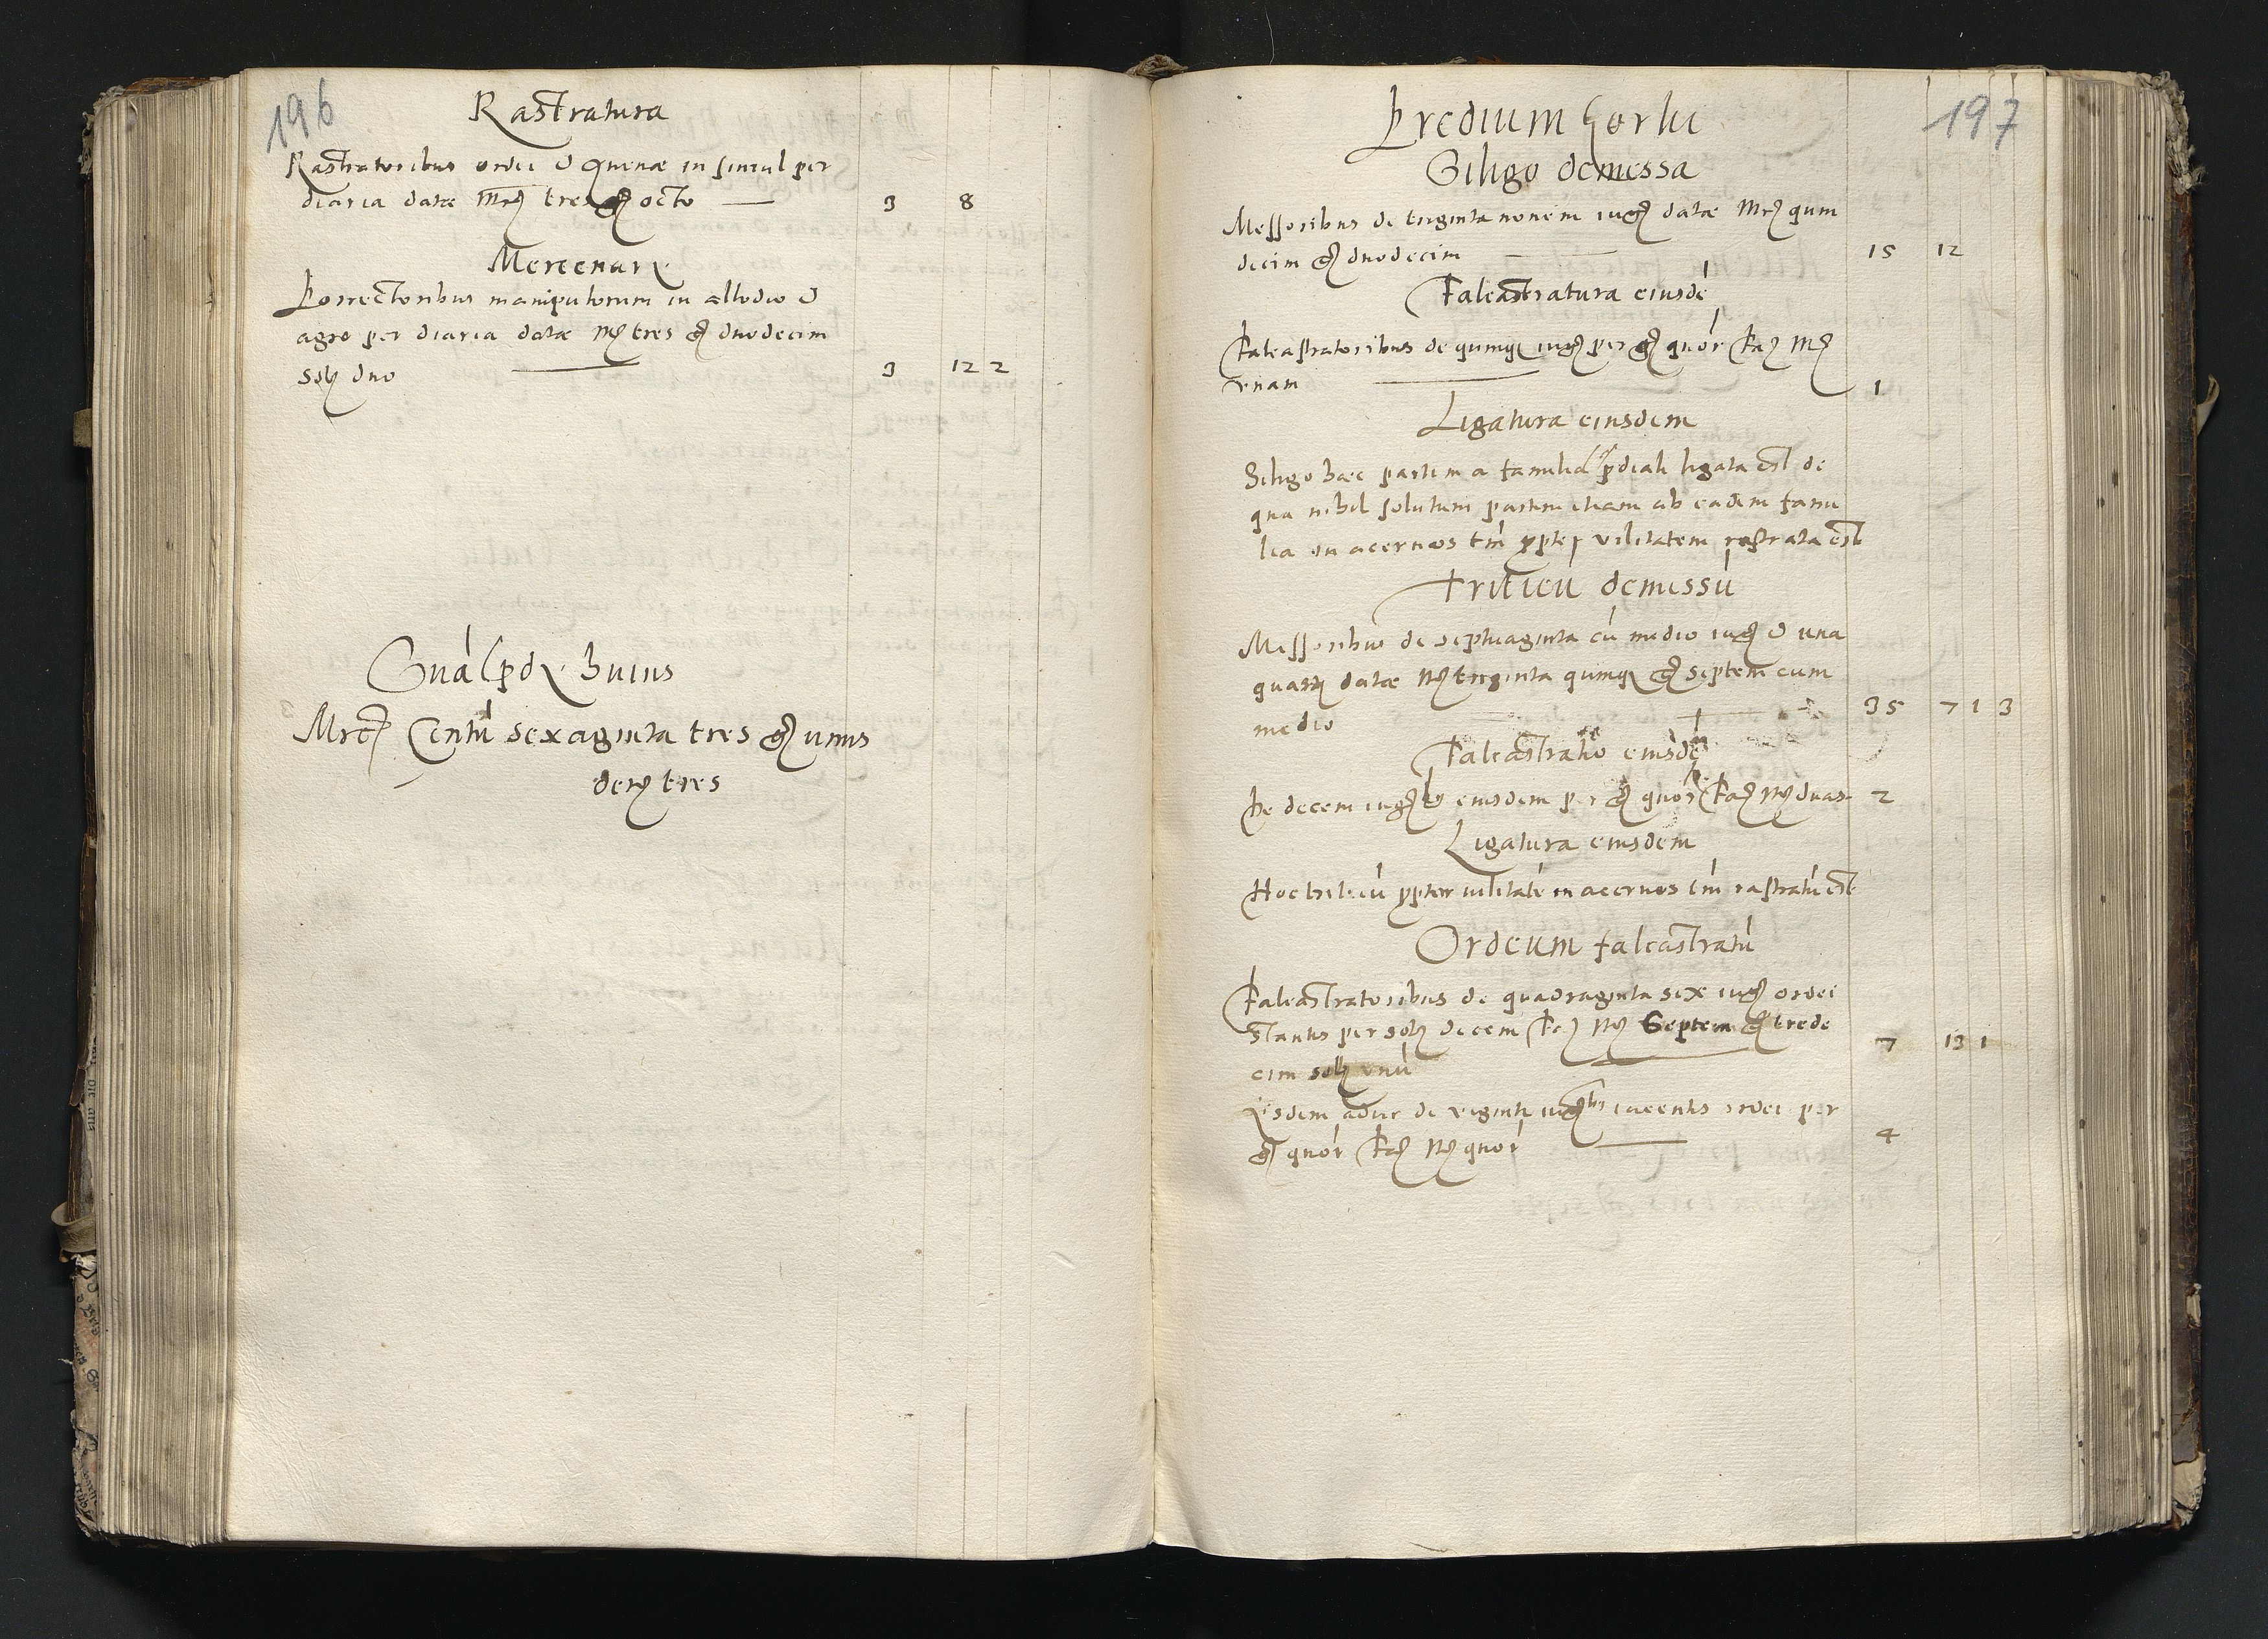 196
Rastratura
Rastratoribus ordei & avenæ in simul per
diaria datæ Mrȩ tres gȩ octo 3 8
Mercenarȩ
Porrectoribus manipulorum in allodio &
agro per diaria datæ Mȩ tres gȩ duodecim
solȩ duo 3 12 2
huius
Mrcȩ Centū sexaginta tres gȩ unus
denȩ tres
197
Predium Gorki
Siligo demessa
Messoribus de triginta novem iugȩ datæ Mrȩ quin
decim gȩ duodecim 15 12
Falcastratura eiusdē
Falcastratoribus de quinqȝ iugȩ per gȩ quor Facȩ Mȩ
vnam 1
Ligatura eiusdem
Siligo hæc partim a familia p̄diali ligata est de
qua nihil solutum partim etiam ab eadem fami
lia in acervos tm̄ ꝓpter vilitatem rastrata est
Triticū demissū
Messoribus de septuaginta cū medio iugȩ & una
quartȩ datæ Mȩ triginta quinqȝ gȩ septem cum
medio 35 7 1 3
Falcastratio eiusdē
De decem iugȩ eiusdem per gȩ quor Facȩ Mȩ duas 2
Ligatura eiusdem
Hoc triticū ꝓpter vilitatē in acervos tm̄ rastratū est
Ordeum falcastratū
Falcastratoribus de quadraginta sex iugȩ ordei
stantis per solȩ decem Facȩ Mȩ Septem gȩ trede
cim solȩ vnū 7 13 1
Eisdem adhuc de viginti iugȩ iacentis ordei per
gȩ quor Facȩ Mȩ quor 4